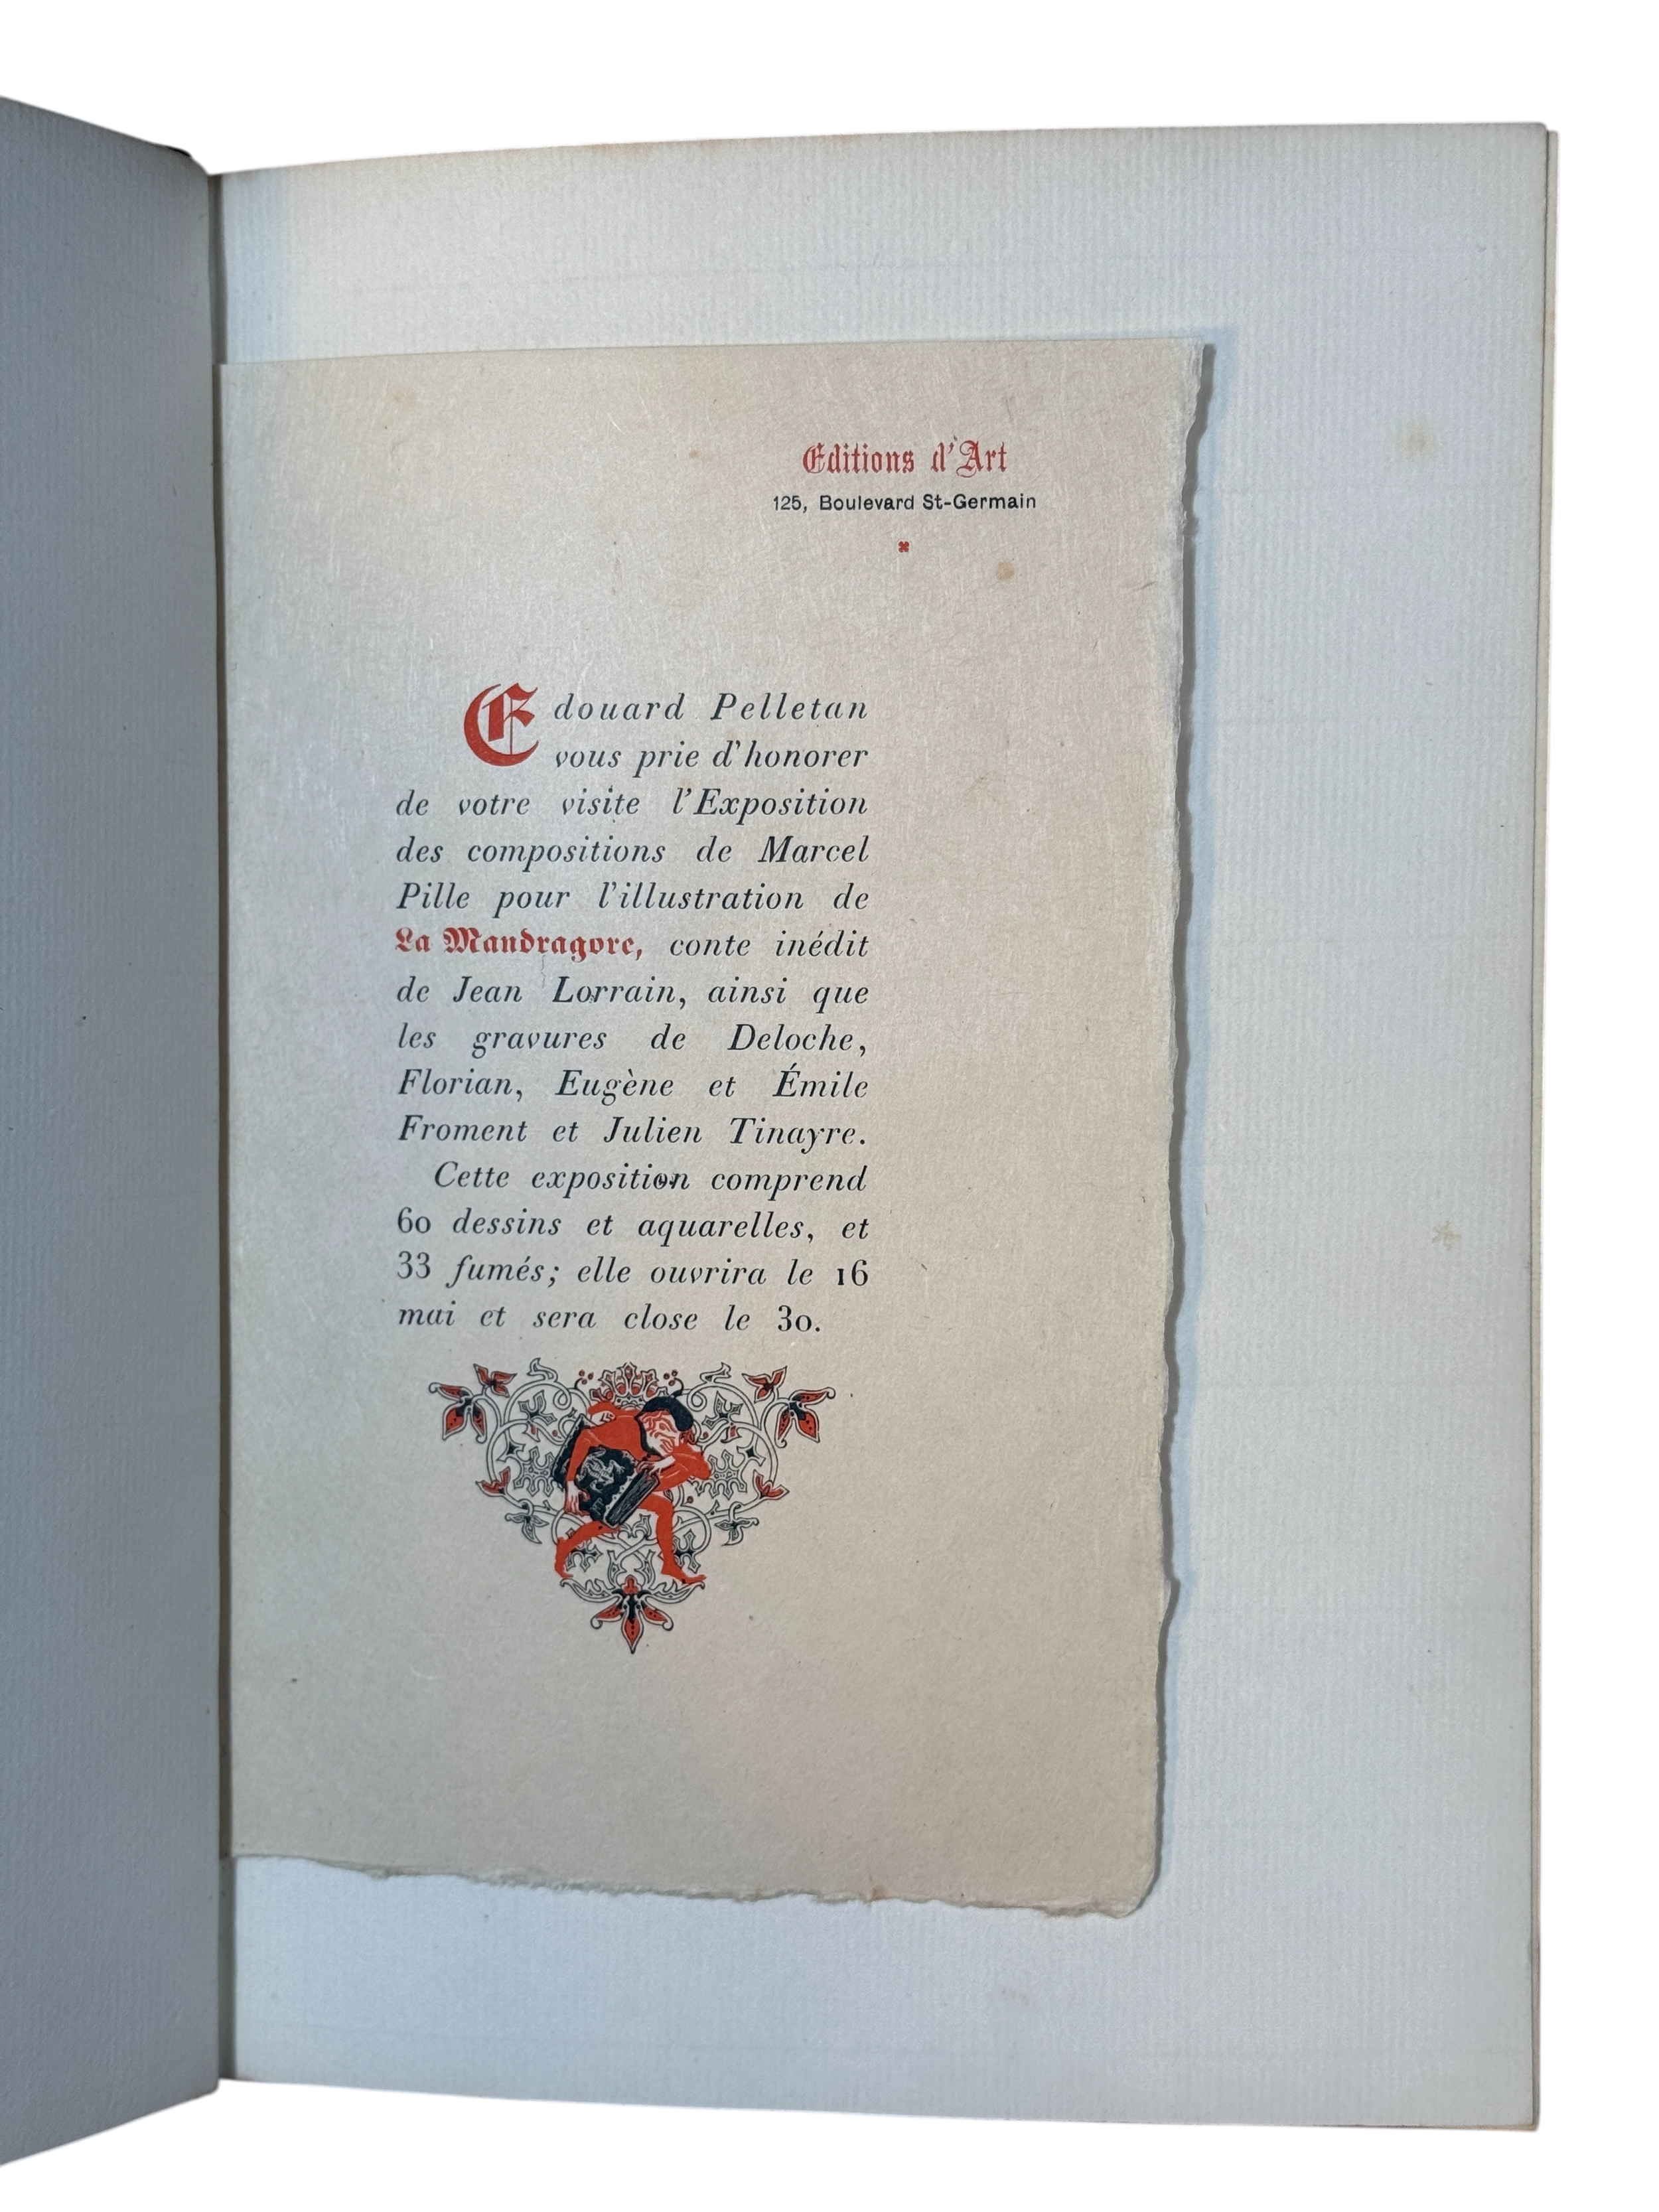 Editions d'Art
125, Boulevard St-Germain
Edouard Pelletan
vous prie d'honorer
de votre visite l'Exposition
des compositions de Marcel
Pille pour l'illustration de
La Mandragore, conte inédit
de Jean Lorrain, ainsi que
les gravures de Deloche,
Florian, Eugène et Émile
Froment et Julien Tinayre.
Cette exposition comprend
60 dessins et aquarelles, et
33 fumés; elle ouvrira le 16
mai et sera close le 30.